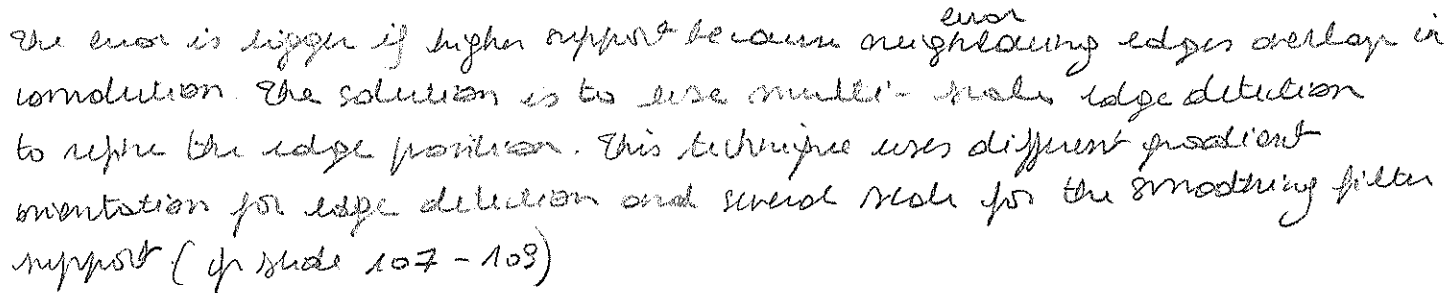 error
The error is bigger if higher support because neighbouring edges overlap in
convolution. The solution is to use multi-scale edge detection
to refine the edge position. This technique uses different gradient
orientation for edge detection and several scale for the smoothing filter
support (cf slide 107-109)